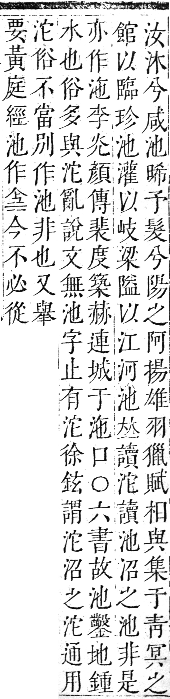 汝沐兮咸池晞予髮兮陽之阿揚雄羽獵賦相與集于靑冥之
館以臨珍池灌以岐梁隘以江河池㚘讀沱讀池沼之池非是
亦作沲李尣顏傳裴度築赫連城于沲口〇六書故池鑿地鍾
水也俗多與沱亂說文無池字止有沱徐鉉謂沱沼之沱通用
沱俗不當別作池非也又舉
要黃庭經池作㿿今不必從